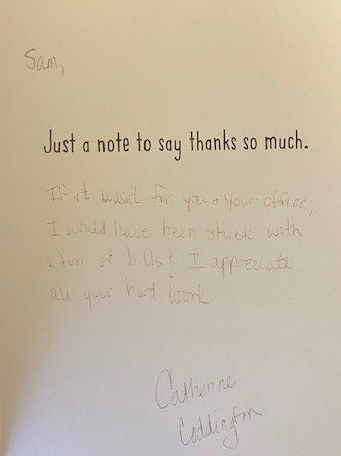 Sam,
Just a note to say thanks so much.
If it wasnt for you & your office,
I would have been stuck with
a ton of bills! I appreciate
all your hart work
Catherine
Coddington